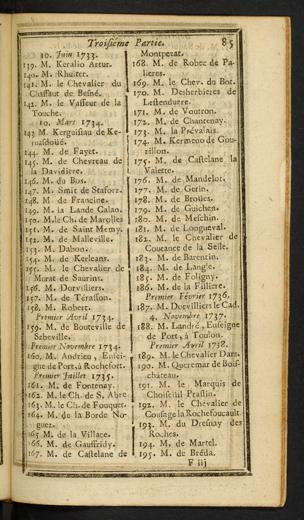 Troisième Partie. 85
10. Juin 1733.
139. M. Keralio Artur.
140. M. Rhuiter.
141. M. le Chevalier du
Chaffaut de Besné.
142. M. le Vasseur de la
Touche.
10. Mars 1734.
143 M. Kerguisiau de Ke-
144. M. de Fayet.
145. M. de Chevreau de
la Davidiere.
146. M. du Bos.
147. M. Smit de Staforz.
148. M de Francine.
149. M. la Lande Galan.
150. M. le Ch. de Marolles
151. M. de Saint Memy.
152. M. de Malleville.
153. M. Dabon.
154. M. de Kerleans.
155. M. le Chevalier de
Murat de Saurins.
156. M. Dorvilliers.
157. M. de Térasson.
158. M. Robert.
Premier Avril 1734.
159. M. de Bouteville de
Sebeville.
Premier Novembre 1734.
160. M. Andrieu, Ensei-
gne de Port, à Rochefort.
Premier Juillet 1735.
161. M. de Fontenay.
162. M. le Ch. de S. Abre
163. M. le Ch. de Fouquet.
164. M. de la Borde No-
guez.
165 M. de la Villace.
166. M. de Gauffridy.
167. M. de Castelane de
Montpezat.
168. M. de Robec de Pa-
lieres.
169. M. le Chev. du Bot.
170. M. Desherbieres de
Lestenduere.
171. M. de Voutron.
172. M. de Chantenay.
173. M. la Prévalais.
174. M. Kermeno de Gou-
zillon.
175. M. de Castelane la
Valette.
176. M. de Mandelot.
177. M. de Gerin.
178. M. de Broües.
179. M. de Guichen.
180. M. de Meschin.
181. M. de Longueval.
182. M. le Chevalier de
Coutance de la Selle.
183. M. de Barentin.
184. M. de Langle.
185. M. de Foligny.
186. M. de la Filliere.
Premier Février 1736.
187. M. Dorvilliers le Cad.
4. Novembre 1737.
188. M. Landré, Enseigne
de Port, à Toulon.
Premier Avril 1738.
189. M. le Chevalier Dars.
190. M. Queremar de Bois-
château.
191. M. le Marquis de
Choiseüil Praslin.
192. M. le Chevalier de
Cousage la Rochefoucault
193. M. du Dresnay des
Roches.
194. M. de Martel.
195. M. de Bréda.
F iij